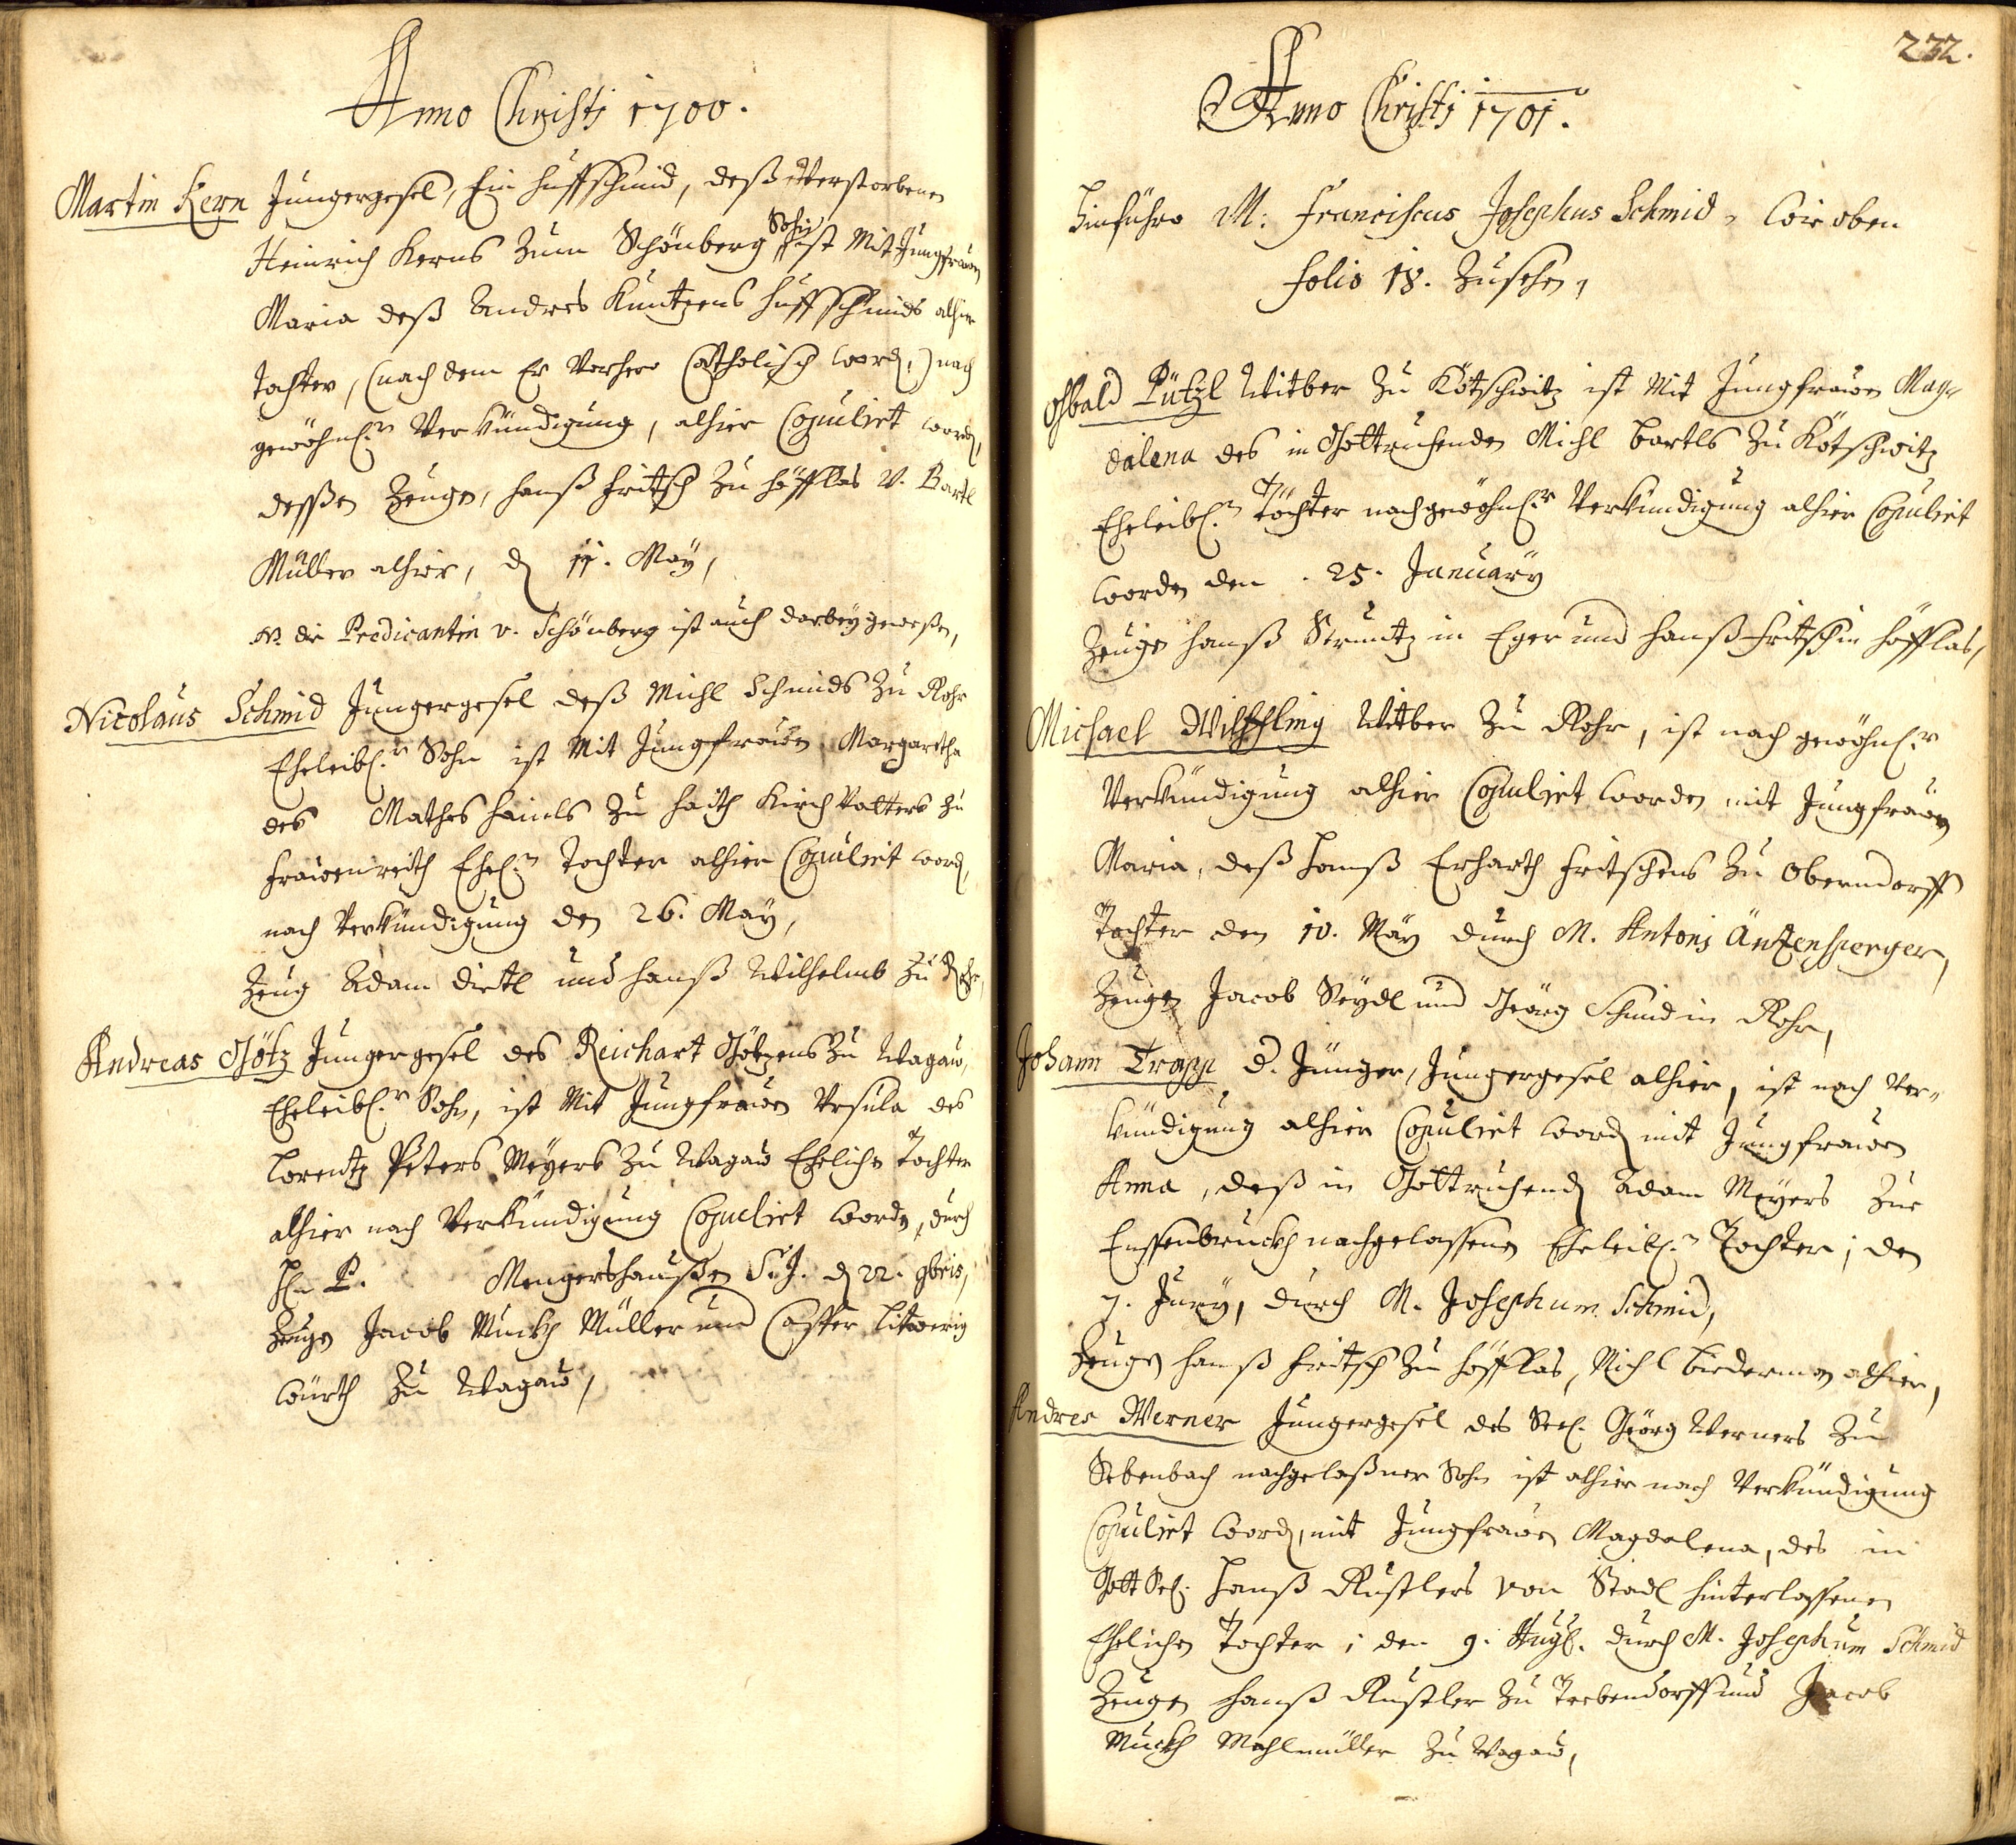 Anno Christi 1700.
Martin Kern Jungergesel, Ein Huffschmid, deß Verstorbenen
Heinrich Kerns Zum Schönberg Sohn ist Mit Jungfrawen
Maria deß Andres Kuntzens Huffschmids alhier
Tochter, (nach dem Er Vorhero Catholisch word,) nach
gewöhnl:r Verkündigung, alhier Copulirt word,
deßen Zeugen, Hanß Fritsch Zu Höfflas v. Bartl
Müller alhier, d 11. May,
NB die Predicantin v. Schönberg ist auch darbey geweßen,
Nicolaus Schmid Jungergesel deß Michl Schmids Zu Rohr
Eheleibl:r Sohn ist Mit Jungfrawen Margaretha
des Mathes Hainls Zu Haith Kirch Vatters zu
Frawenreith Ehel:n Tochter alhier Copulirt word,
nach Verkündigung den 26. May,
Zeug Adam Dietl und Hanß Wilhelmb Zu Rohr,
Andreas Götz Jungergesel des Reichart Götzens Zu Wagaw,
Eheleibl:r Sohn, ist Mit Jungfrawen Ursula des
Lorentz Peters Meyers Zu Wagaw Ehelichen Tochter
alhier nach Verkündigung Copulirt worden, durch
H. P. Mengershaußen S.J. d 22. 9bris,
Zeugen Jacob Muckh Müller und Casper
Würth Zu Wagaw,
232.
Anno Christi 1701.
Hinführo M: Franciscus Josephus Schmid, wie oben
folio 18. Zusehen,
Oßbald Pützl Witber Zu Kötschwitz ist Mit Jungfrawen Mag-
dalena des in Gottruhenden Michl Bartls Zu Kötschwitz
Eheleibl:n Töchter nach gewöhnl:r Verkündigung alhier Copulirt
worden den . 25. January
Zeugen Hanß in Eger und Hanß Fritsch in Höfflas,
Michael Witber Zu Rohr, ist nach gewöhnl:r
Verkündigung alhier Copulirt worden mit Jungfrawen
Maria, deß Hanß Erharth Fritschens Zu Oberndorff
Tochter den 10. May durch M. Antonj Äntzensperger,
Zeugen Jacob Seydl und Geörg Schmid in Rohr,
Johann Trapp d. Jünger, Jungergesel alhier, ist nach Ver-
kündigung alhier Copulirt word mit Jungfrawen
Anna, deß in Gottruhend Adam Meyers Zue
Ensenbruckh nachgelassenen Eheleibl:n Tochter; den
7. Juny, durch M. Josephum Schmid,
Zeugen Hanß Fritsch Zu Höfflas, Michl Biederman alhier,
Andres Werner Jungergesel des Seel. Geörg Werners Zu
Sebenbach nachgelaßner Sohn ist alhier nach Verkündigung
Copulirt word, mit Jungfrawen Magdalena, des in
Gott Sel: Hanß Rustlers von Stadl hinterlassenen
Ehelichen Tochter; den 9. Aug. durch M. Josephum Schmid
Zeugen Hanß Rustler Zu Trebendorff und Jacob
Muckh Mahlmüller Zu Wagaw,